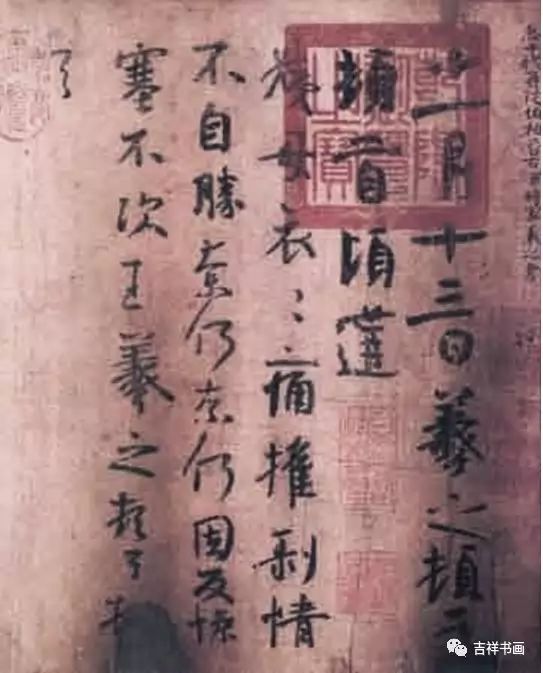 十一月十三日羲之頓首
頓首頃遘
姨母哀〻痛摧剝情
不自勝奈何奈何因反慘
塞不次王羲之頓首頓
首
吉祥书画